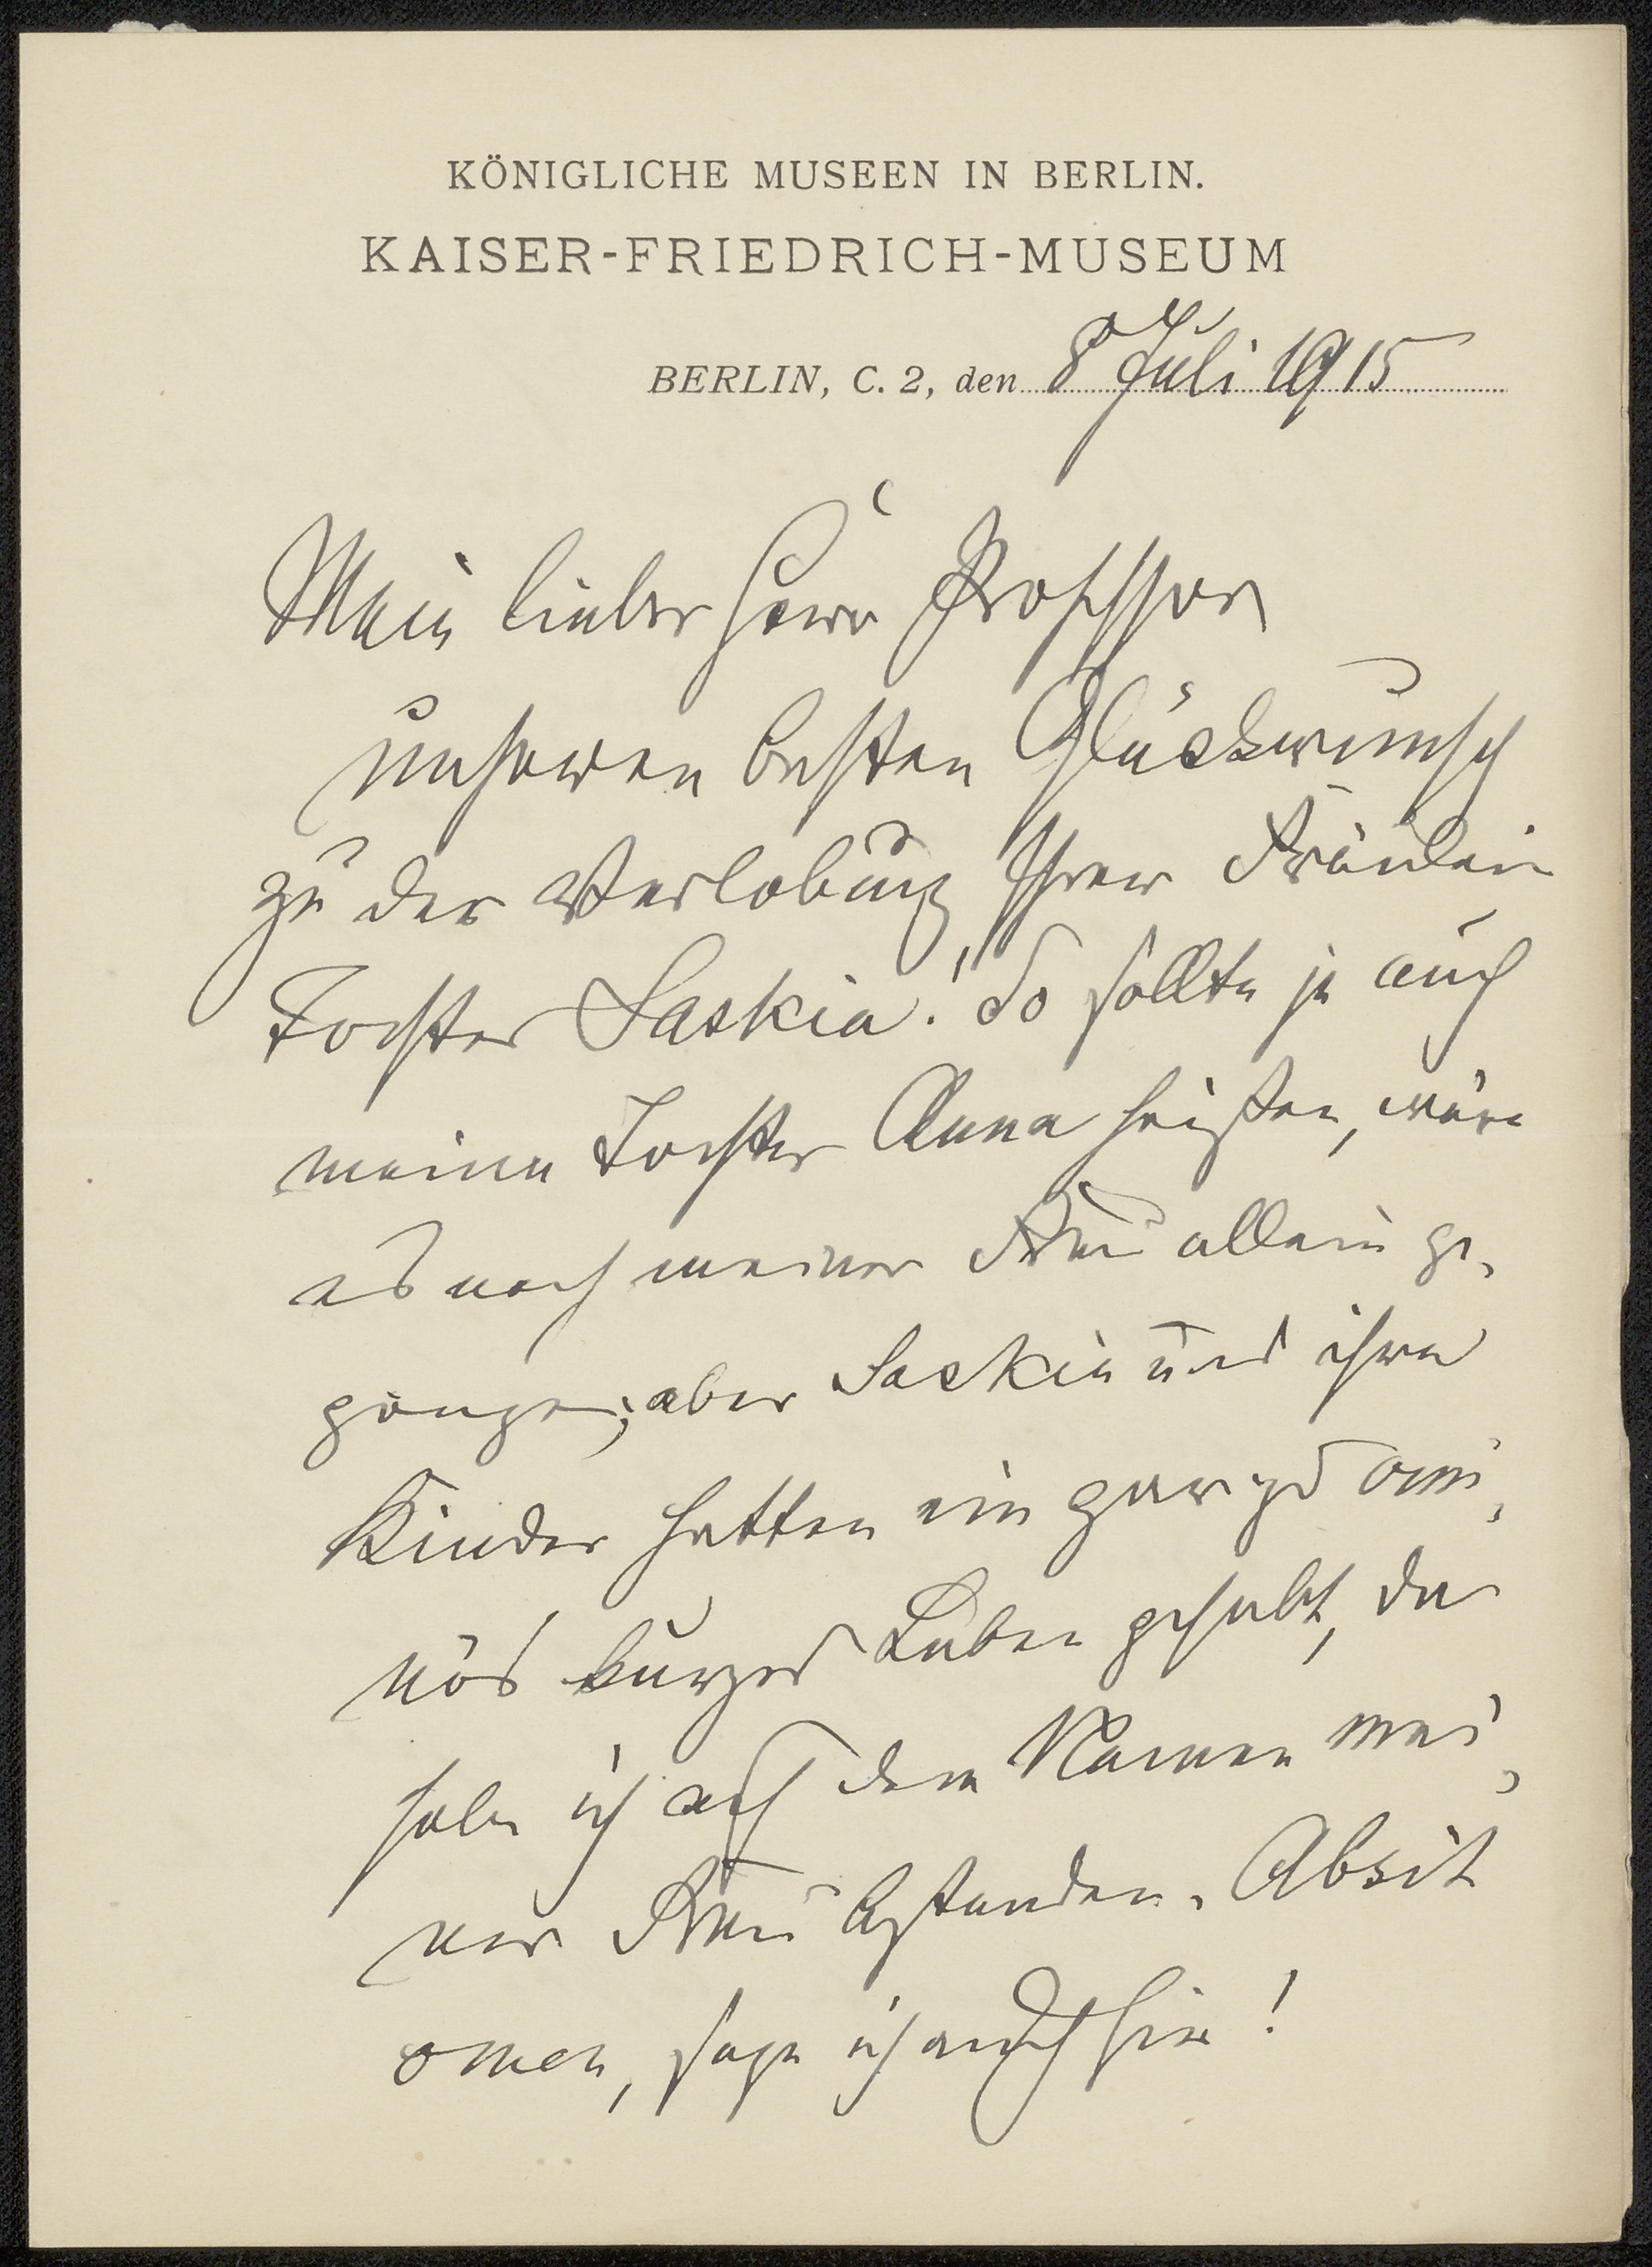 KÖNIGLICHE MUSEEN IN BERLIN.
KAISER-FRIEDRICH-MUSEUM
BERLIN, C. 2, den 8 Juli 1915
Mein lieber Herr Professor
unseren besten Glückwunsch
zu der Verlobung Ihrer Fräulein
Tochter Saskia! So sollte ja auch
meine Tochter Anna heißen, wäre
es nach meiner Frau allein ge-
gangen; aber Saskia und ihre
Kinder hatten ein omi-
nös kurzes Leben gehabt, da
habe ich auf dem Namen mei-
ner Frau bestanden. Absit
omen, sage ich auch hier!